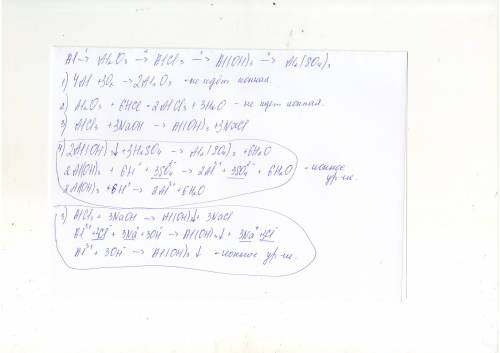 Al →¹ Al₂O₃ →² AlCl₃ →³ Al(OH)₃ →⁴ Al₂(SO₄)₃
1) 4Al + 3O₂ → 2Al₂O₃ - не идёт ионная.
2) Al₂O₃ + 6HCl = 2AlCl₃ + 3H₂O - не идёт ионная.
3) AlCl₃ + 3NaOH → Al(OH)₃ + 3NaCl
4) 2Al(OH)₃↓ + 3H₂SO₄ → Al₂(SO₄)₃ + 6H₂O
2Al(OH)₃ + 6H⁺ + 3SO₄²⁻ → 2Al³⁺ + 3SO₄²⁻ + 6H₂O - ионное ур-ие.
2Al(OH)₃ + 6H⁺ → 2Al³⁺ + 6H₂O
3) AlCl₃ + 3NaOH → Al(OH)₃↓ + 3NaCl
Al³⁺ + 3Cl⁻ + 3Na⁺ + 3OH⁻ → Al(OH)₃↓ + 3Na⁺ + 3Cl⁻
Al³⁺ + 3OH⁻ → Al(OH)₃↓ - ионное ур-ие.